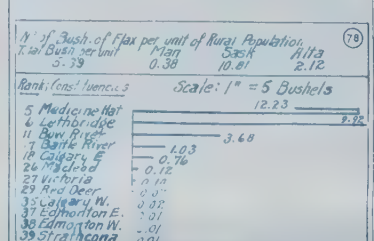 Nº of Bush. of Flax per unit of Rural Population
78
Total Bush per unit Man Sask Alta
5-39 0.38 10.81 2.12
Rank: Constituencies Scale: 1" = 5 Bushels
5 Medicine Hat 12.23
6 Lethbridge 9.92
11 Bow River 3.68
17 Battle River 1.03
18 Calgary E 0.76
26 Macleod 0.12
27 Victoria
29 Red Deer
35 Calgary W. 0.02
37 Edmonton E. .01
38 Edmonton W. .01
39 Strathcona 0.01